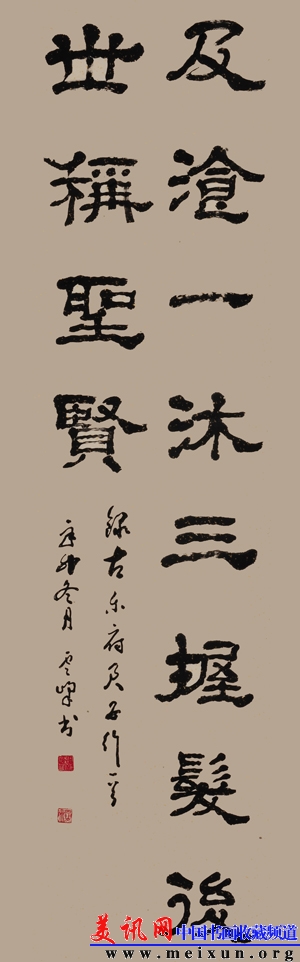 及湌一沐三握髮後
世稱聖賢
錄古樂府君子行一首
辛卯冬月雲峰書
美讯网
中国书画收藏频道
www.meixun.org